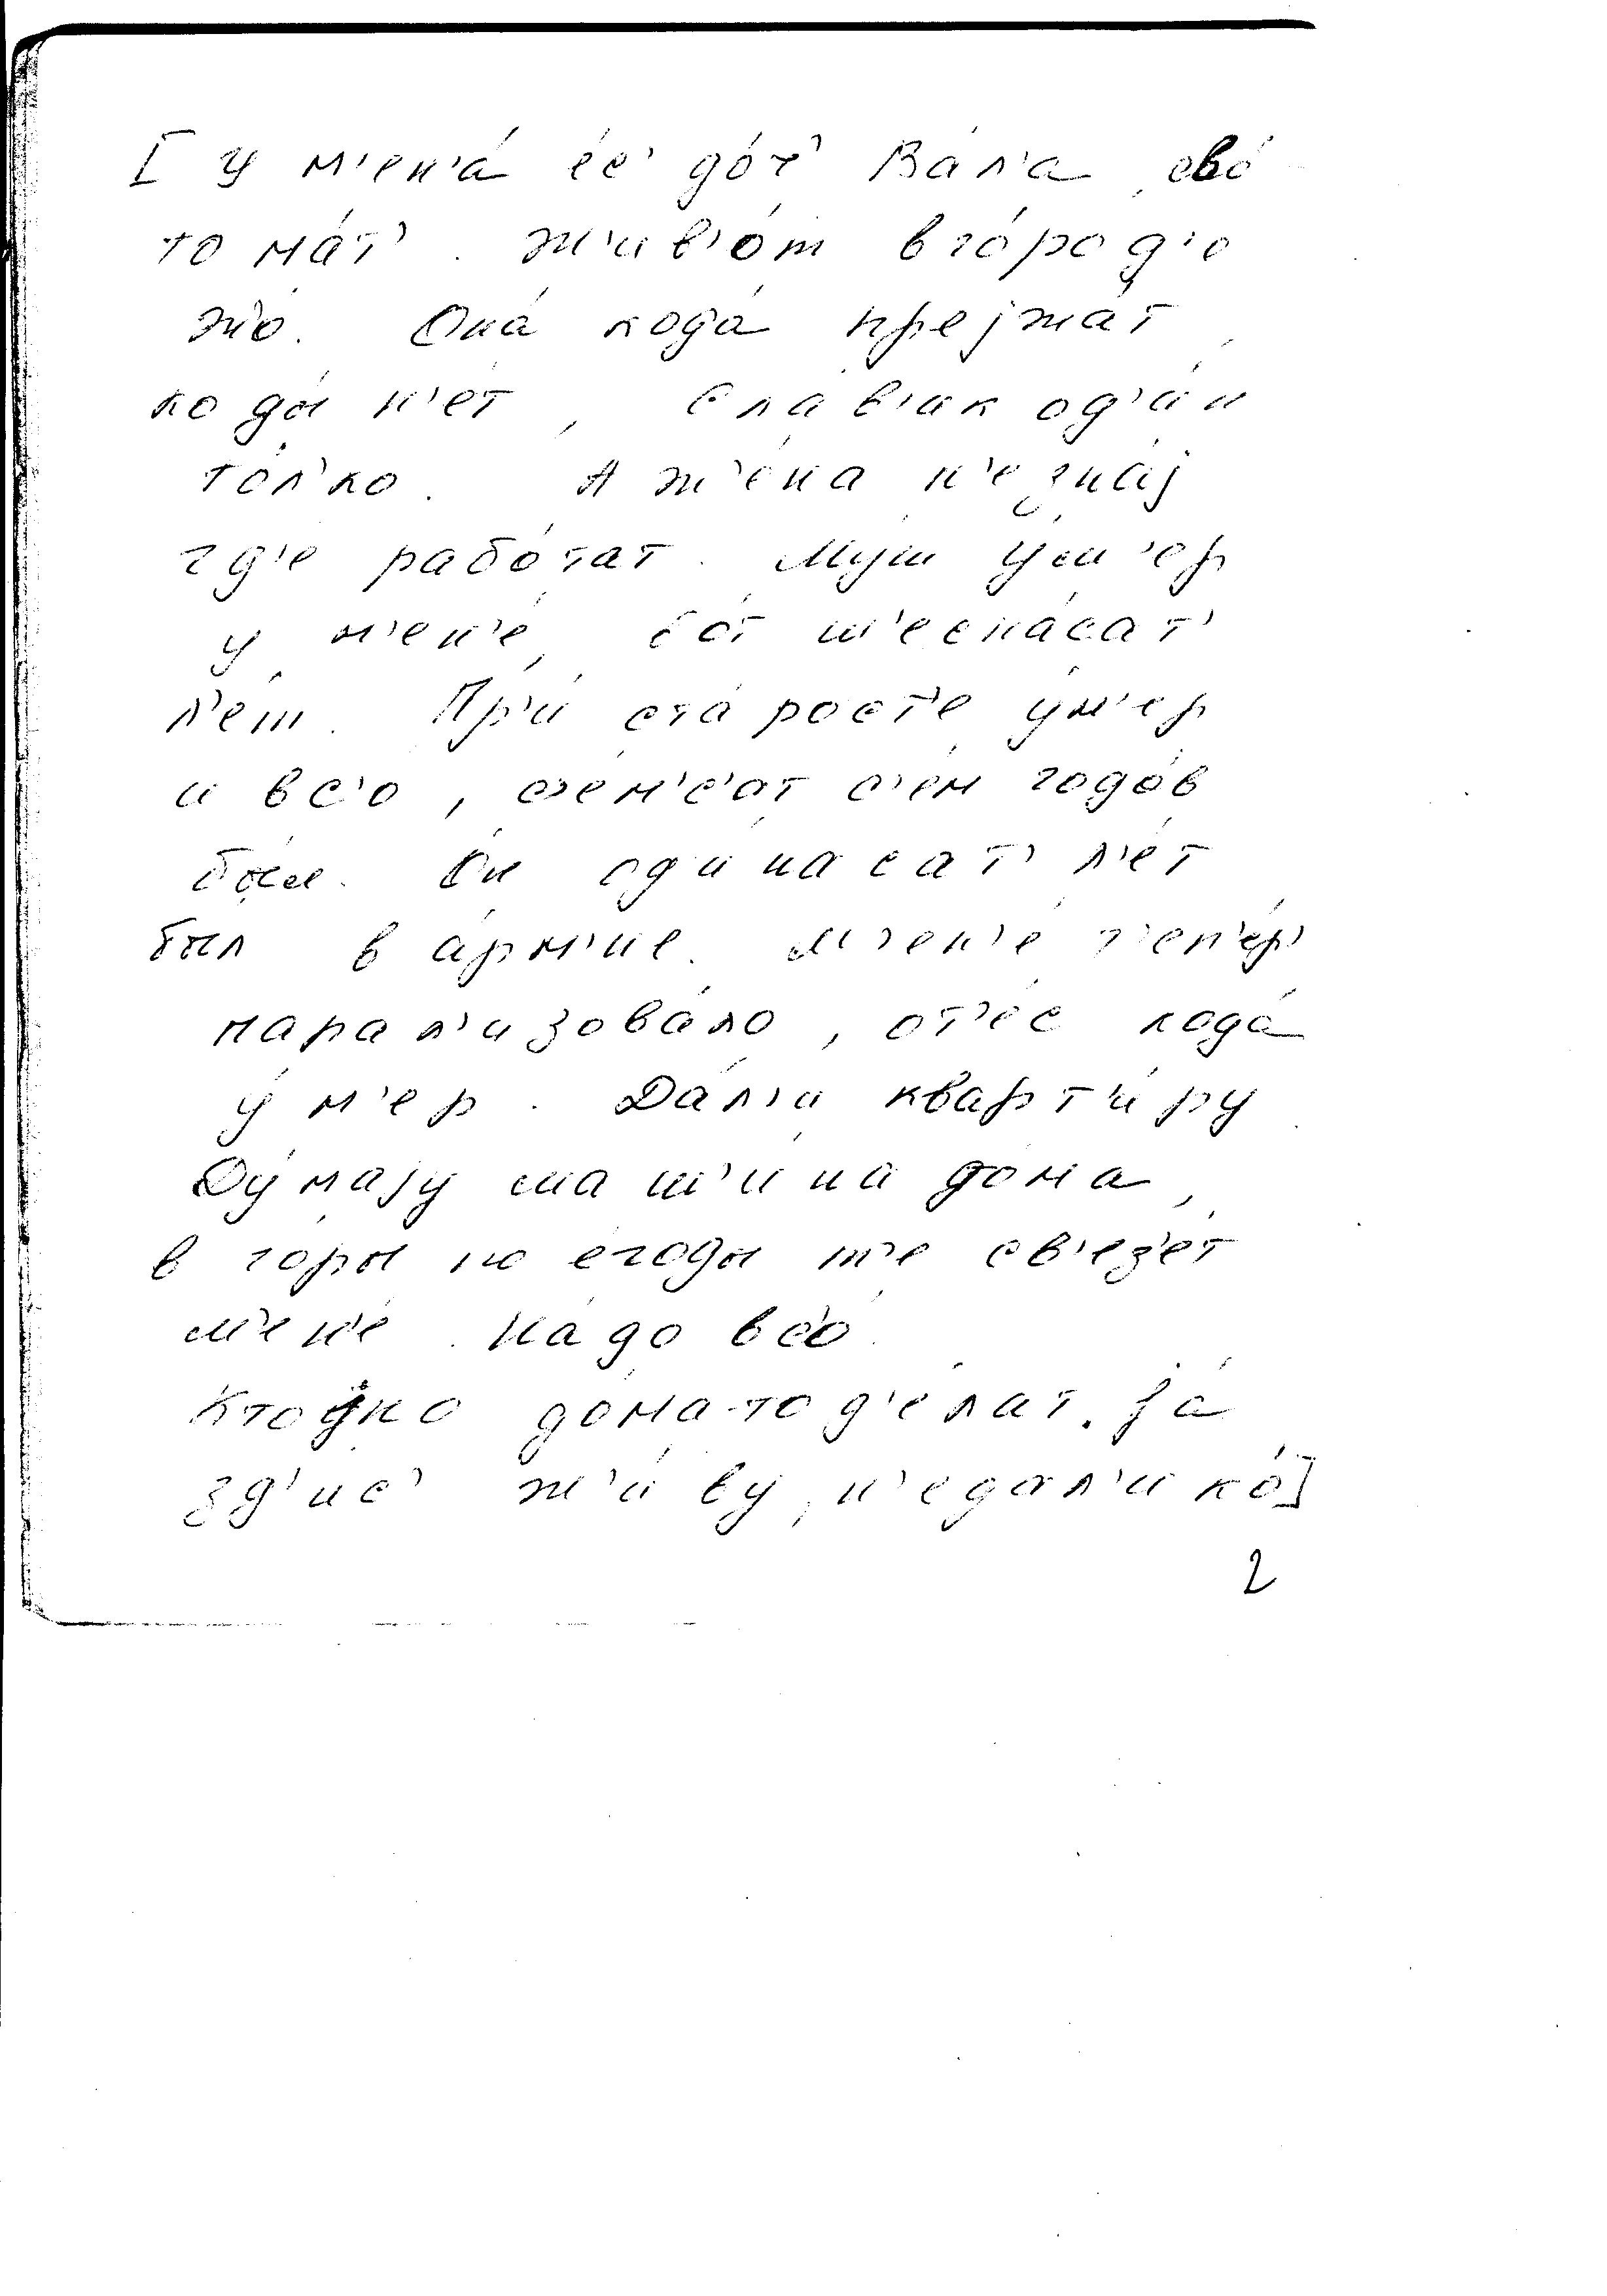 [ У м'ен'а́ е́с' до́ч' Ва́л'а, евó
то ма́т'. Ж'ив'о́т в го́род'е
жо. Она́ кода́ прејжа́т,
коды́ н'ет, Сла́в'ик од'и́н
то́л'ко. А ж'ена́ н'е зна́ј
гд'е рабо́тат. Муш у́м'ер
у м'ен'е́, бот ш'есна́сат'
л'ет. Пр'и ста́рост'е у́м'ер
и в с'о, с'ем'с'ат с'ем годо́в
был. Он оди́насат' л'ет
был в а́рм'ие. М'ен'е́ т'еп'е́р'
парал'изова́ло, от'е́с кода́
у́м'ер. Да́л'и кварт'и́ру
Ду́мају маш'и́на до́ма,
в го́ры по е́годы т'е св'ез'е́т
м'ен'е́. На́до в с'о́.
Кто у́ко до́ма-то д'е́лат. Ја́
зд'ис' ж'иву́, н'едал'и ко́]
2